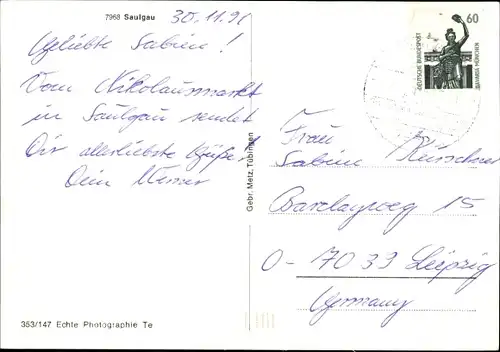 7968 Saulgau
30.11.91
Geliebte Sabine!
Vom Nikolausmarkt
in Saulgau sendet
Dir allerliebste Küße!
Dein Werner
353/147 Echte Photographie Te
Gebr. Metz, Tübingen
60
DEUTSCHE BUNDESPOST
BAVARIA MÜNCHEN
Frau
Sabine
Barclayweg 15
O-7039 Leipzig
Germany